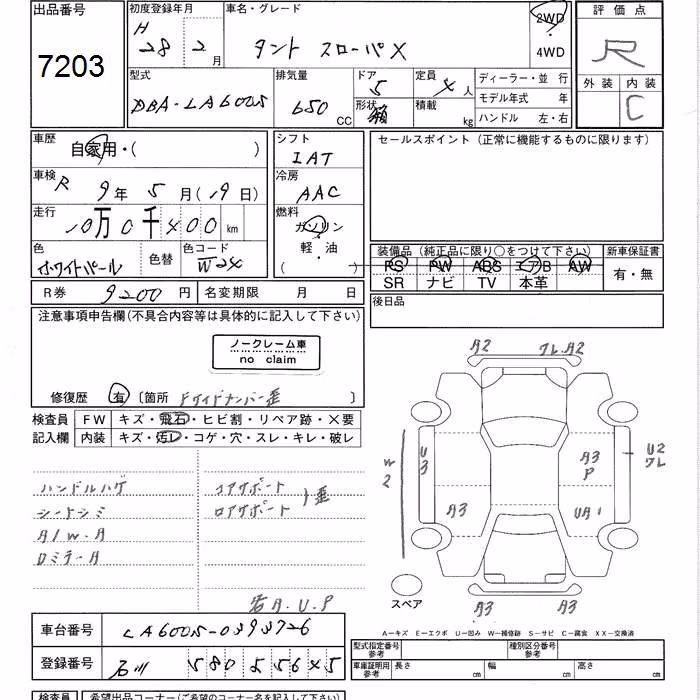 出品番号
7203
初度登録年月
H 28 2月
車名・グレード
タント スローパX
2WD
・
4WD
評価点
R
外装 内装
C
型式
DBA-LA600S
排気量
650 CC
ドア
5
形状
箱
定員
4人
積載
kg
ディーラー・並行
モデル年式 年
ハンドル 左・右
車歴
自家用・( )
車検
R 9年 5月(19日)
走行
10万0千400km
色
ホワイトパール
色替
色コード
W24
シフト
IAT
冷房
AAC
燃料
ガソリン
・
軽・油
( )
セールスポイント(正常に機能するものに限ります)
装備品(純正品に限り○をつけて下さい)
PS PW ABS エアB AW
SR ナビ TV 本革
新車保証書
有・無
R券 9200円
名変期限 月 日
後日品
注意事項申告欄(不具合内容等は具体的に記入して下さい)
ノークレーム車
no claim
修復歴 有 〔箇所 Fサイドメンバー歪 〕
検査員
記入欄
FW キズ・飛石・ヒビ割・リペア跡・×要
内装 キズ・汚レ・コゲ・穴・スレ・キレ・破レ
ハンドルハゲ
シートシミ
A/W・A
Dミラー・A
コアサポート
ロアサポート
歪
若A.U.P
A2
ワレ.A2
W2
U3
A3
A3
P
UA1
U2
ワレ
A3
A3
スペア
A-キズ E-エクボ U-凹み W-補修跡 S-サビ C-腐食 XX-交換済
車台番号
LA600S-0393726
登録番号
石川 580
型式指定番号
参考
種別区分番号
参考
車庫証明用
参考
長さ cm
幅 cm
高さ cm
検査員
希望出品コーナー(ご希望のコーナー名を記入下さい)